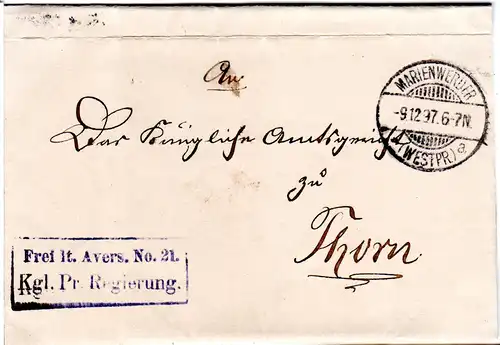 An
MARIENWERDER
-9.12.97.6-7N.
(WESTPR.) a.
Das Königliche Amtsgericht
zu
Thorn.
Frei lt. Avers. No. 21.
Kgl. Pr. Regierung.